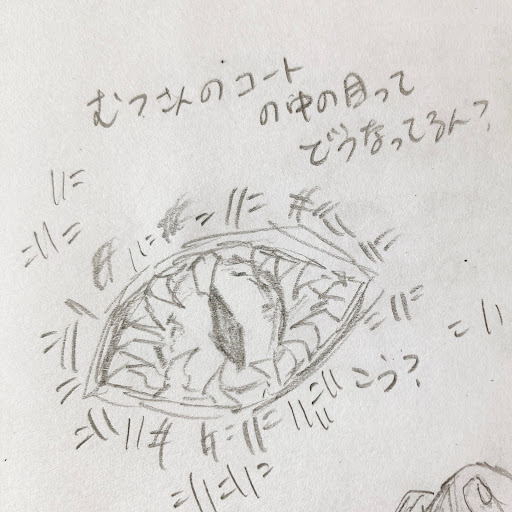 むつさんのコート
の中の目って
どうなってるん?
こう?